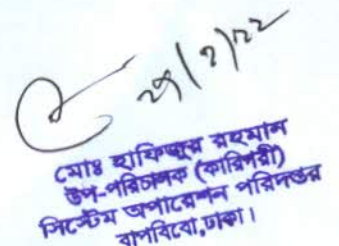 মোঃ হাফিজুর রহমান
উপ-পরিচালক (কারিগরী)
সিস্টেম অপারেশন পরিদপ্তর
বাপবিবো,ঢাকা।